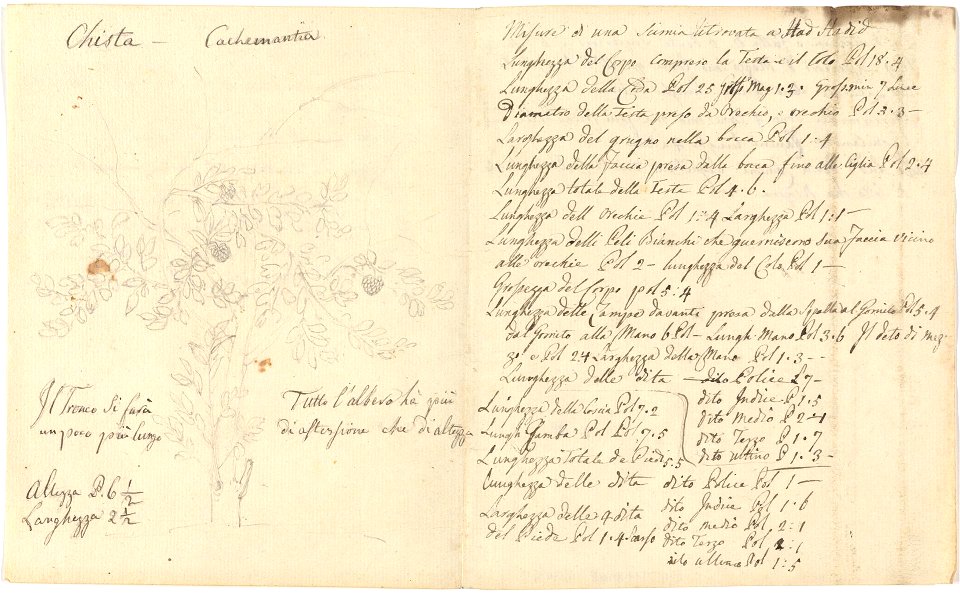 Chista — Cachemantia
Il Tronco si furà
un poco più lungo
Tutto l'albero hà più
di astersione che di altezza
Altezza P. 6 1/2
Larghezza 2 1/2
Misure di una Scimia ritrovata a
Lunghezza del Corpo compreso la Testa e il Colo Pol 18.4
Lunghezza della Coda Pol 25 Mag 1.3. Gross min 7 Linee
Diametro della Testa preso da orechio, e orechio Pol 3.3—
Larghezza del grugno nella bocca Pol 1.4
Lunghezza della faccia presa dalla boca fino alle Ciglia Pol 2.4
Lunghezza totale della Testa Pol 4.6.
Lunghezza dell orechie Pol 1:4 Larghezza Pol 1:1—
Lunghezza delli Peli Bianchi che guerniscono sua faccia vicino
alle orechie Pol 2— lunghezza del Colo Pol 1—
Grossezza del Corpo pol 5:4
Lunghezza delle Zampe davanti presa dalla Spalla al Gomito Pol 5.4
dal Gomito alla Mano 6 Pol— Lungh Mano Pol 3.6 Il deto di mez
zo e Pol 2:4 Larghezza della Mano Pol 1.3—
Lunghezza delle dita dito Police L 7—
dito Indice P 1.5
Lunghezza della Coscia Pol 7.2 dito medio P 2—1
Lungh Gamba Pol Pol 7.5 dito Terzo P 1.7
Lunghezza Totale de Piedi 5.5 dito ultimo P 1.3—
Lunghezza delle dita dito Police Pol 1—
Larghezza delle 4 dita dito Indice Pol 1:6
dito medio Pol 2:1
del Piede Pol 1.4. dito Terzo Pol 2:1
dito ultimo Pol 1:5